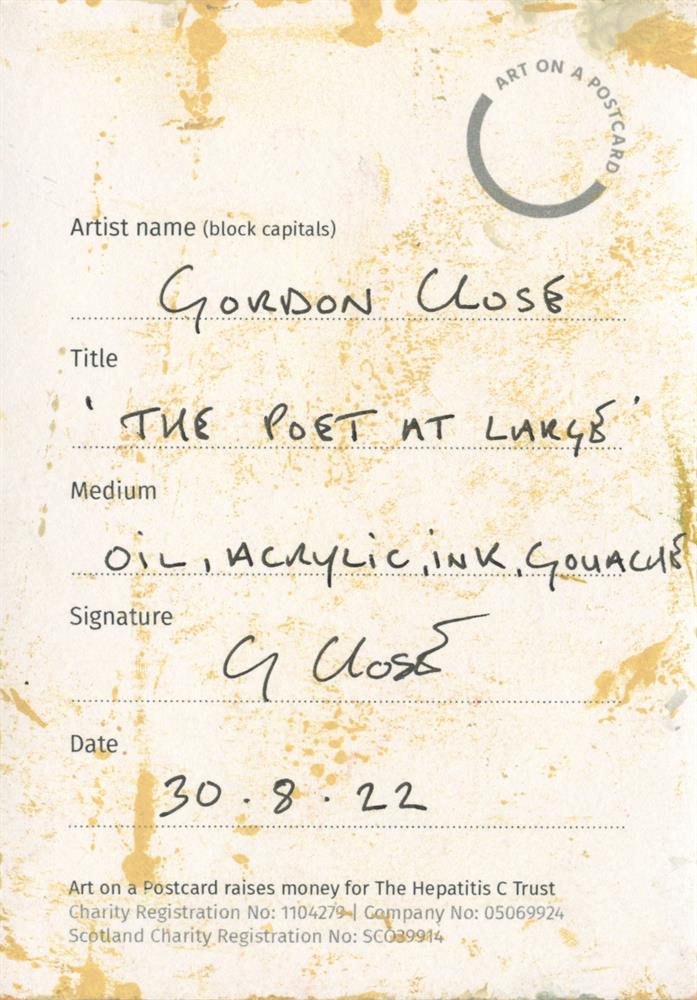 ART ON A POSTCARD
Artist name (block capitals)
GORDON CLOSE
Title
'THE POET AT LARGE'
Medium
OIL, ACRYLIC, INK, GOUACHE
Signature
G Close
Date
30.8.22
Art on a Postcard raises money for The Hepatitis C Trust
Charity Registration No: 1104279 | Company No: 05069924
Scotland Charity Registration No: SCO39914